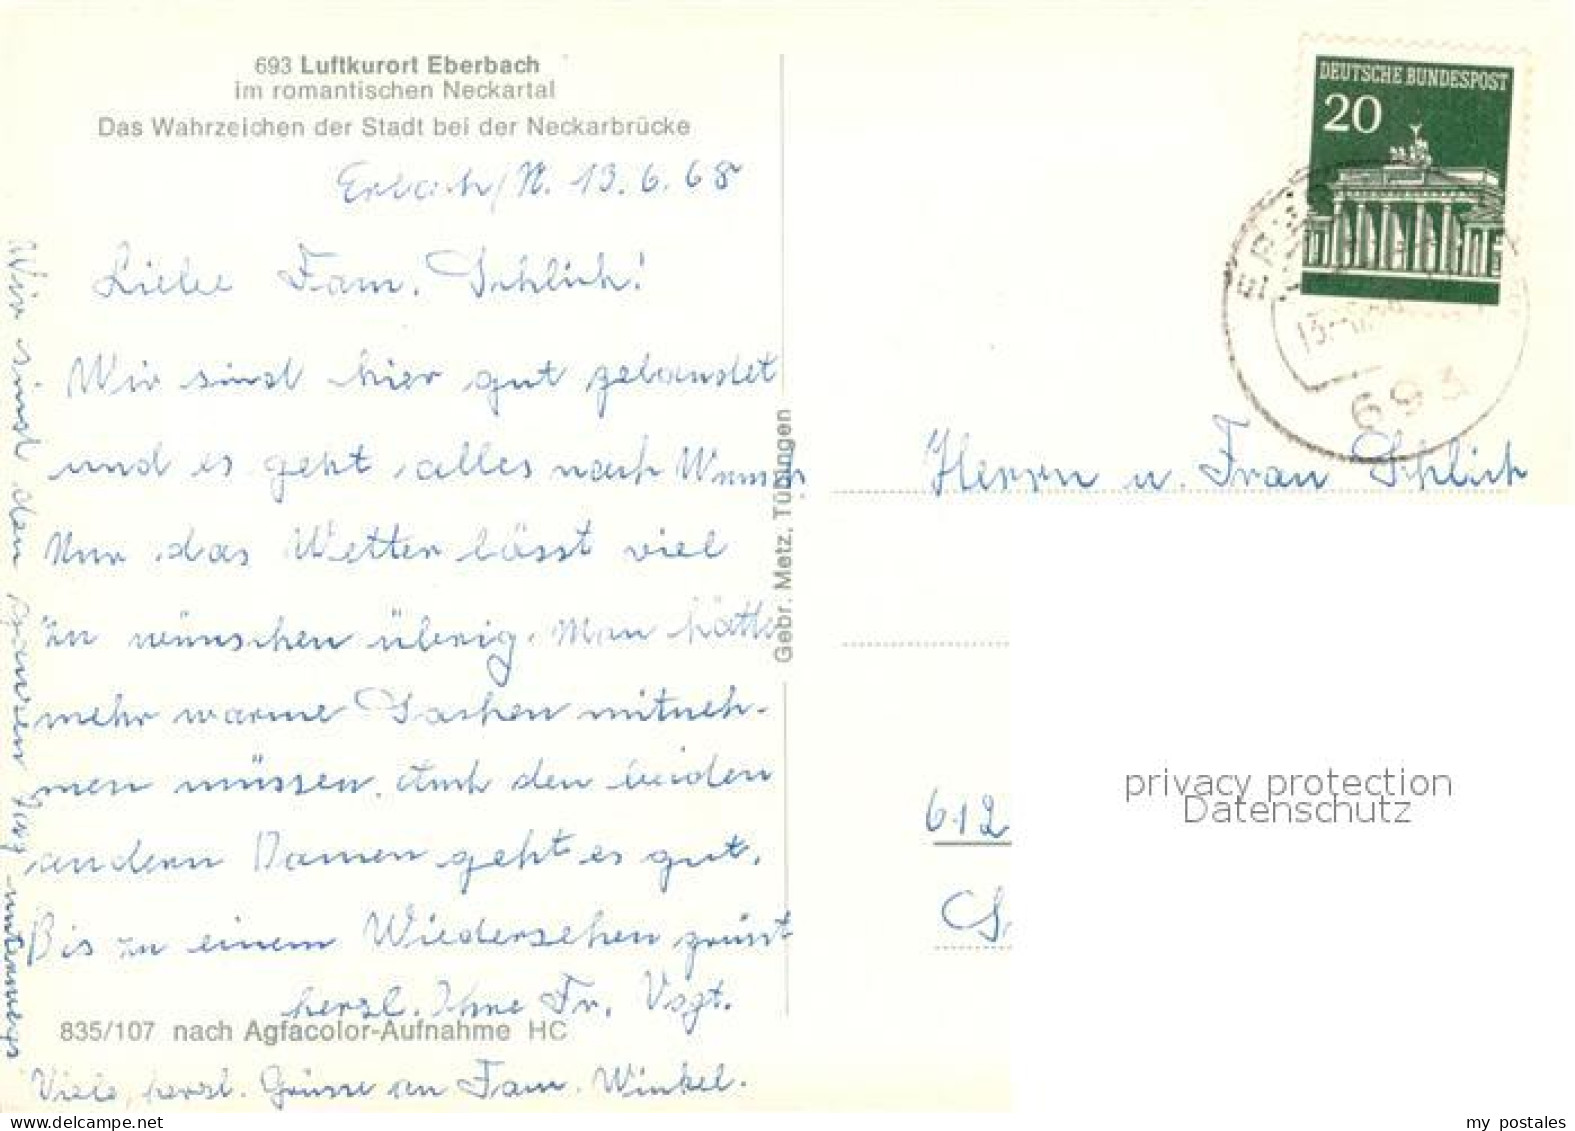 693 Luftkurort Eberbach
im romantischen Neckartal
Das Wahrzeichen der Stadt bei der Neckarbrücke
Erbach/N. 13.6.68
Liebe Fam. Schlich!
Wir sind hier gut gelandet
und es geht alles nach Wunsch
Nur das Wetter lässt viel
zu wünschen übrig. Man hätte
mehr warme Sachen mitneh-
men müssen. Auch den beiden
andern Damen geht es gut.
Bis zu einem Wiedersehen grüsst
herzl. Ihre Fr. Vogt.
835/107 nach Agfacolor-Aufnahme HC
Viele herzl. Grüsse an Fam. Winkel.
Wir sind den ganzen Tag unterwegs
Gebr. Metz, Tübingen
DEUTSCHE BUNDESPOST
20
693
Herrn u. Frau Schlich
612
privacy protection
Datenschutz
my postales